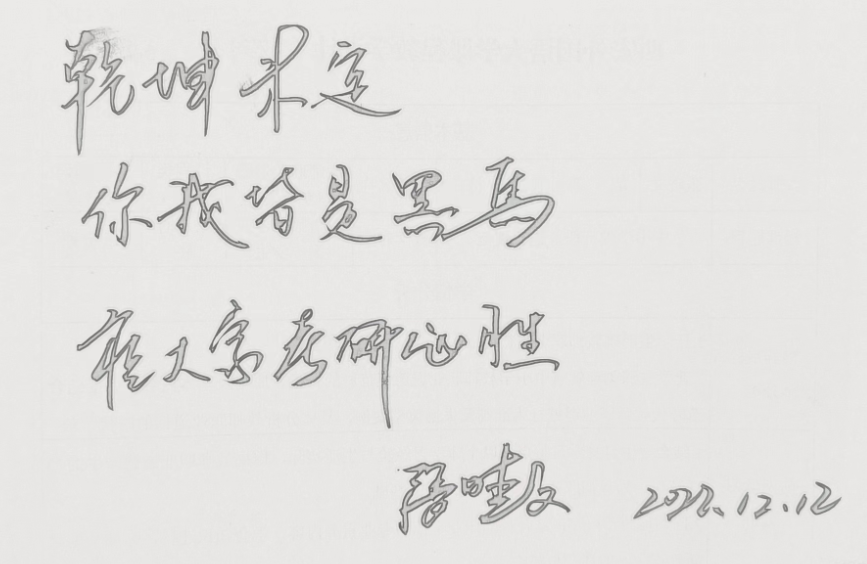 乾坤未定
你我皆是黑馬
祝大家考研必胜
2022.12.12